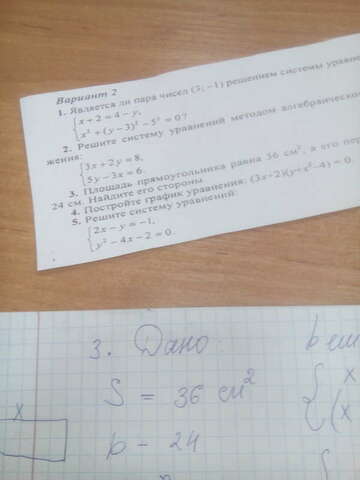 Вариант 2
1. Является ли пара чисел (3; −1) решением системы уравне
{x + 2 = 4 − y,
x² + (y − 3)² − 5² = 0?
2. Решите систему уравнений методом алгебраическо
жения:
{3x + 2y = 8,
5y − 3x = 6.
3. Площадь прямоугольника равна 36 см², а его пер
24 см. Найдите его стороны.
4. Постройте график уравнения: (3x + 2)(y + x² − 4) = 0.
5. Решите систему уравнений:
{2x − y = −1,
y² − 4x − 2 = 0.
3. Дано:
S = 36 см²
p − 24
x
{x
(x